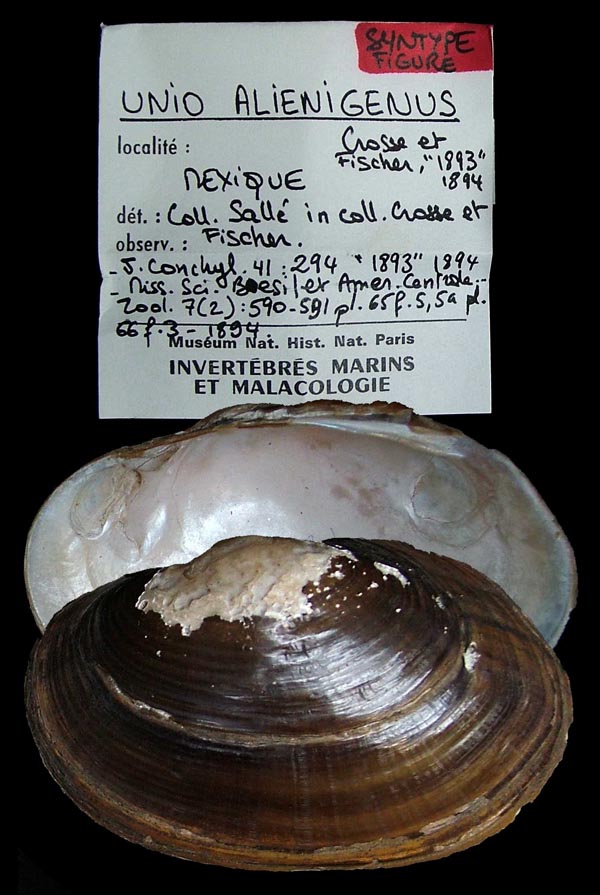 SYNTYPE
FIGURE
UNIO ALIENIGENUS
localité : Crosse et
Fischer, "1893"
1894
MEXIQUE
dét. : Coll. Sallé in coll. Crosse et
observ. : Fischer.
- J. Conchyl. 41 : 294 "1893" 1894
- Miss. Sci. Brésil et Amer. Centrale,-
Zool. 7(2) : 590-591 pl. 65 f. 5, 5a pl.
66 f. 3 - 1894.
Muséum Nat. Hist. Nat. Paris
INVERTÉBRÉS MARINS
ET MALACOLOGIE